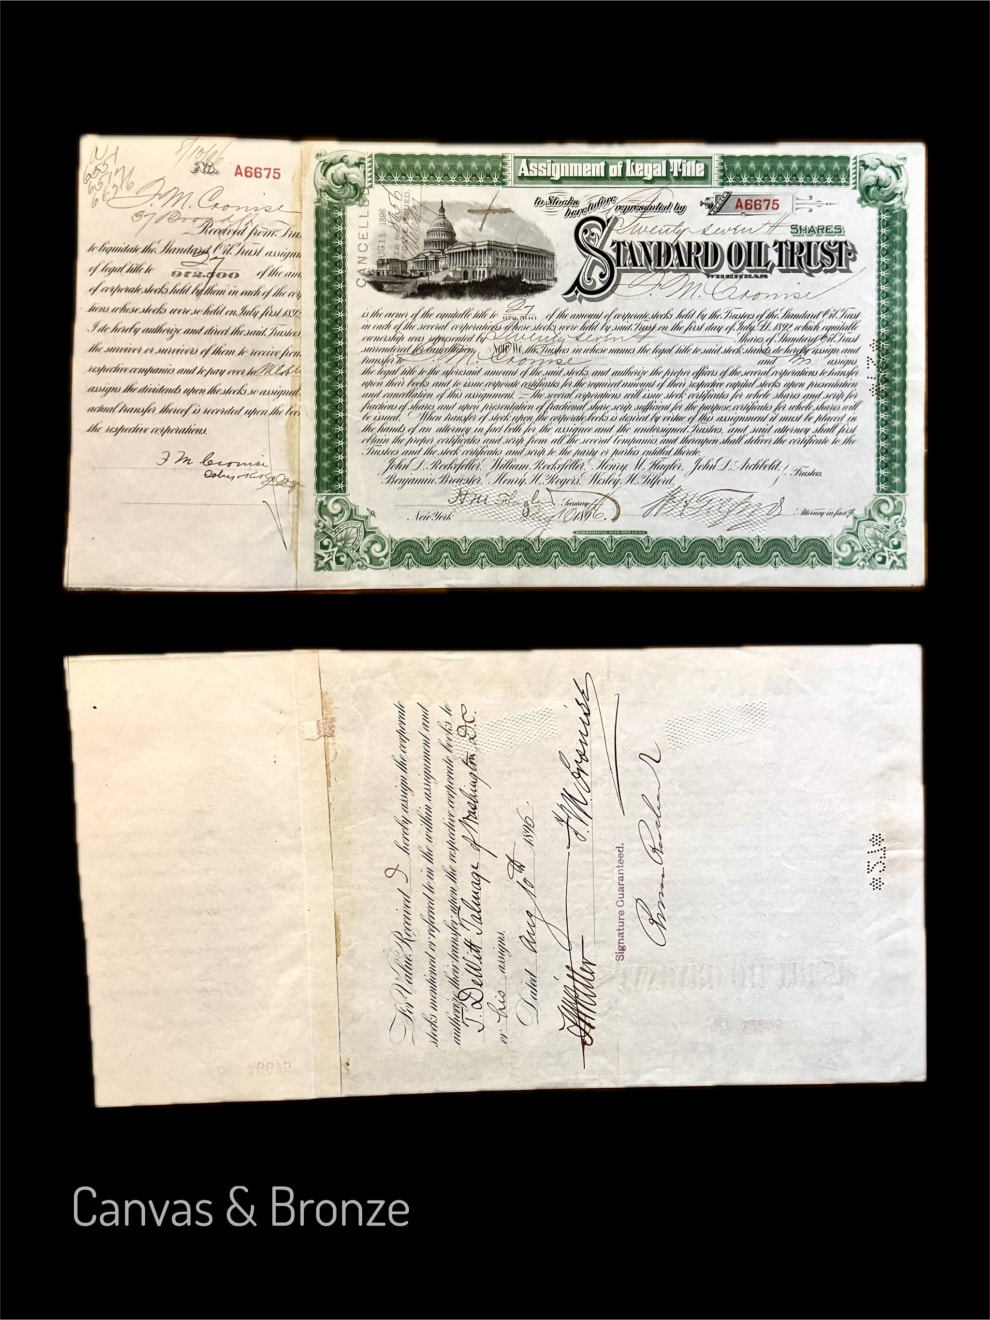 8/10/96
No. A6675
F. M. Cromise
Received from Trus
to liquidate the Standard Oil Trust assignm
of legal title to 27/972.500 of the am
of corporate stocks held by them in each of the cor
tions whose stocks were so held on July first 1892
I do hereby authorize and direct the said Trustees
the survivor or survivors of them to receive from
respective companies and to pay over to
assigns the dividends upon the stocks so assigned
actual transfer thereof is recorded upon the boo
the respective corporations.
F M Cromise
Assignment of Legal Title
to Stocks heretofore represented by No A6675
CANCELLED
Twenty seven SHARES
STANDARD OIL TRUST
F. M. Cromise
is the owner of the equitable title to 27/972.500 of the amount of corporate stocks held by the Trustees of the Standard Oil Trust
in each of the several corporations whose stocks were held by said Trust on the first day of July, 1892, which equitable
ownership was represented by Twenty seven Shares of Standard Oil Trust
surrendered for cancellation. Now We the Trustees in whose names the legal title to said stock stands do hereby assign and
transfer to F. M. Cromise and his assigns
the legal title to the aforesaid amount of the said stocks, and authorize the proper officers of the several corporations to transfer
upon their books and to issue corporate certificates for the required amount of their respective capital stocks upon presentation
and cancellation of this assignment. — The several corporations will issue stock certificates for whole shares and scrip for
fractions of shares and upon presentation of fractional share scrip sufficient for the purpose, certificates for whole shares will
be issued. When transfer of stock upon the corporate books is desired by virtue of this assignment it must be placed in
the hands of an attorney in fact both for the assignee and the undersigned Trustees, and said attorney shall first
obtain the proper certificates and scrip from all the several companies and thereupon shall deliver the certificate to the
Trustees and the stock certificates and scrip to the party or parties entitled thereto.
John D. Rockefeller, William Rockefeller, Henry M. Flagler, John D. Archbold,
Benjamin Brewster, Henry H. Rogers, Wesley H. Tilford, Trustees.
Secretary
New York Aug 10 1896 Attorney in fact
For Value Received I hereby assign the corporate
stocks mentioned or referred to in the within assignment and
authorize their transfer upon the respective corporate books to
T. DeWitt Talmage of Washington D.C.
or his assigns.
Dated Aug 10th 1896.
F. M. Cromise
Signature Guaranteed.
Canvas & Bronze